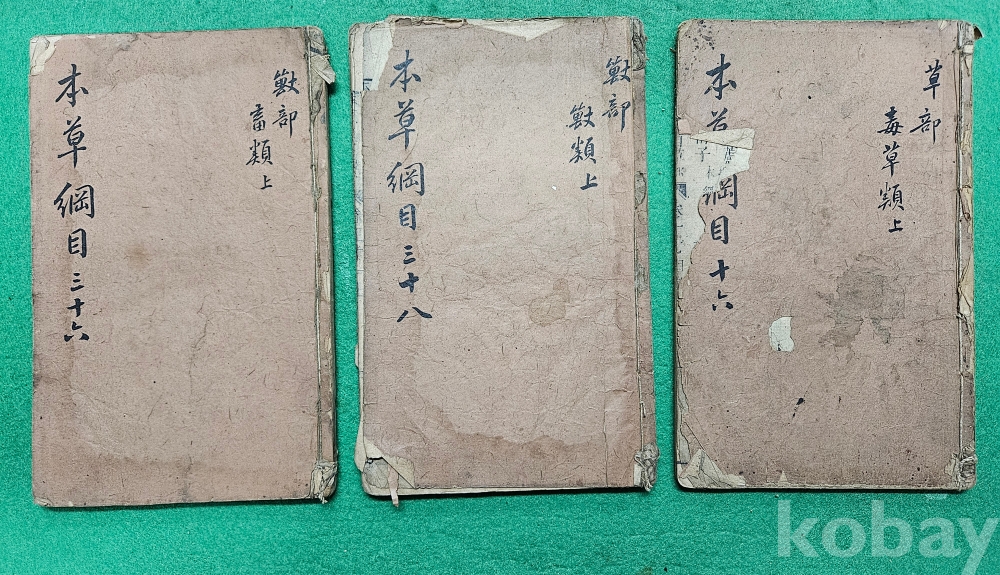 獸部
畜類上
本草綱目三十六
獸部
獸類上
本草綱目三十八
草部
毒草類上
本草綱目十六
kobay